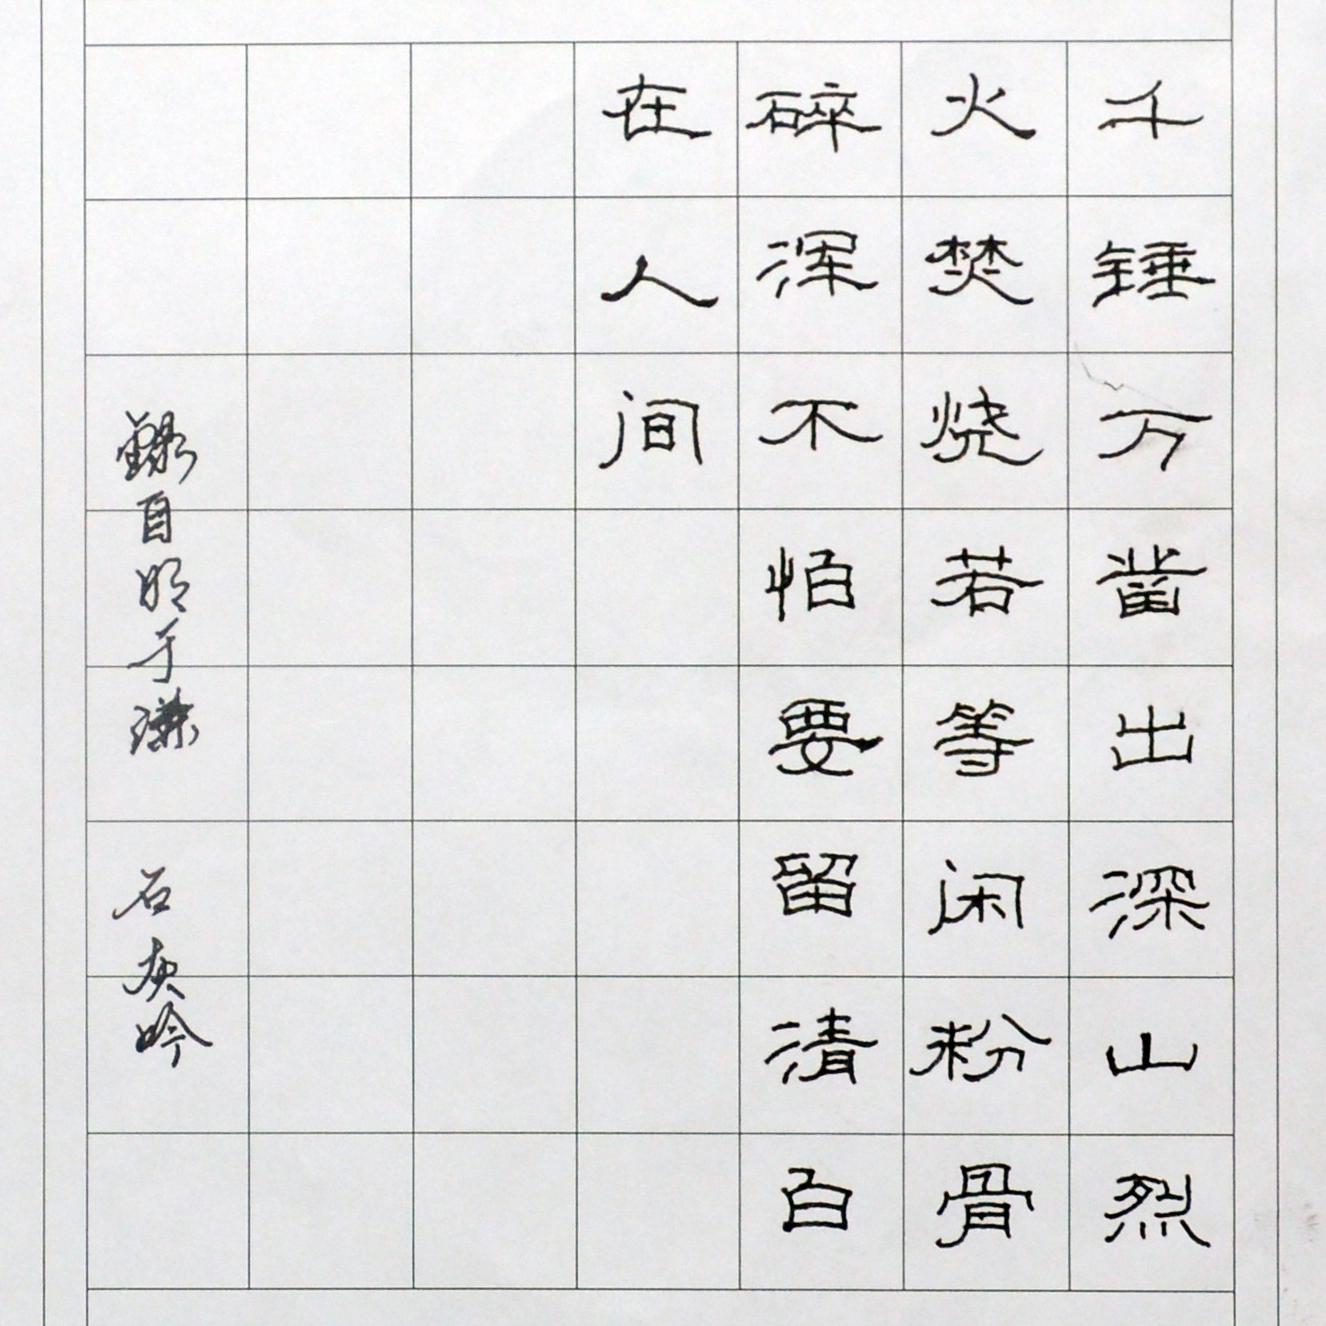 千锤万凿出深山烈
火焚烧若等闲粉骨
碎浑不怕要留清白
在人间
録自明于谦 石灰吟